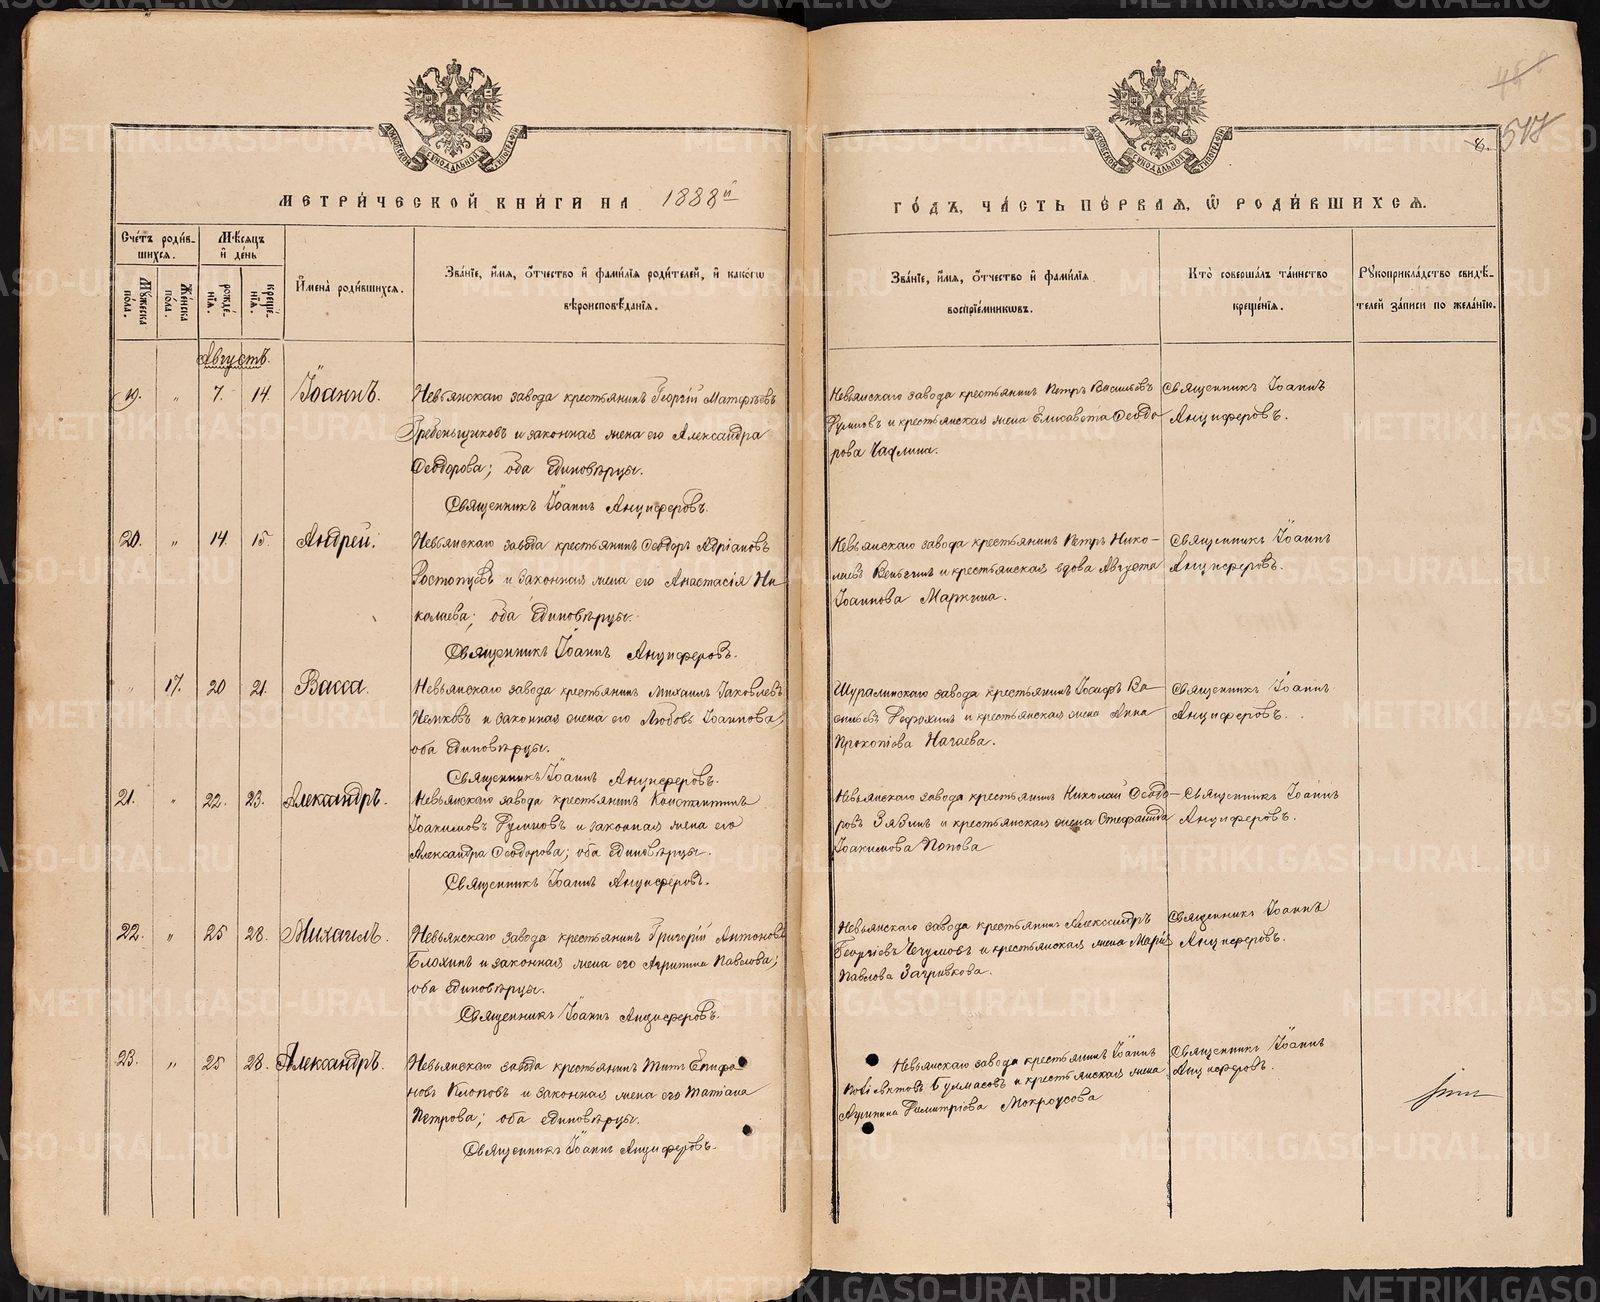 МЕТРИ́ЧЕСКОЙ КНИ́ГИ НА 1888й
ГО́ДЪ, ЧА́СТЬ ПЕ́РВАЯ, Ѡ РОДИ́ВШИХСЯ.
8. 517
Сче́тъ роди́в-
шихся.
Мѣсяцъ
и де́нь
Му́жеска по́ла.
Же́нска по́ла.
рожде́нїя.
креще́нїя.
И҆мена̀ роди́вшихся.
Зва́нїе, и҆́мя, ѻ҆́тчество и҆ фами́лїя роди́телей, и҆ како́гѡ
вѣроисповѣ́данїя.
Зва́нїе, и҆́мя, ѻ҆́тчество и҆ фами́лїя
воспрїе́мникѡвъ.
Кто̀ соверша́лъ та́инство
креще́нїя.
Рꙋкоприкла́дство свидѣ́-
телей за́писи по жела́нїю.
Августъ.
19. " 7. 14. Іоаннъ.
Невьянскаго завода крестьянинъ Георгій Матфѣевъ
Гребеньщиковъ и законная жена его Александра
Ѳеодорова; оба единовѣрцы.
Священникъ Іоаннъ Анциферовъ.
Невьянскаго завода крестьянинъ Петръ Васильевъ
и крестьянская жена Елисавета Ѳеодо-
рова
Священникъ Іоаннъ
Анциферовъ.
20. " 14. 15. Андрей.
Невьянскаго завода крестьянинъ Ѳеодоръ Адріановъ
и законная жена его Анастасія Ни-
колаева; оба единовѣрцы.
Священникъ Іоаннъ Анциферовъ.
Невьянскаго завода крестьянинъ Петръ Нико-
лаевъ и крестьянская вдова Августа
Іоаннова Маркина.
Священникъ Іоаннъ
Анциферовъ.
" 17. 20 21. Васса.
Невьянскаго завода крестьянинъ Михаилъ Іаковлевъ
и законная жена его Любовь Іоаннова;
оба единовѣрцы.
Священникъ Іоаннъ Анциферовъ.
Шуралинскаго завода крестьянинъ Іосифъ Ва-
сильевъ и крестьянская жена Анна
Прокопіева
Священникъ Іоаннъ
Анциферовъ.
21. " 22. 23. Александръ.
Невьянскаго завода крестьянинъ Константинъ
Іоакимовъ и законная жена его
Александра Ѳеодорова; оба единовѣрцы.
Священникъ Іоаннъ Анциферовъ.
Невьянскаго завода крестьянинъ Николай Ѳеодо-
ровъ и крестьянская жена Стефанида
Іоакимова Попова
Священникъ Іоаннъ
Анциферовъ.
22. " 25 28. Михаилъ.
Невьянскаго завода крестьянинъ Григорій Антоновъ
Блохинъ и законная жена его Агрипина Павлова;
оба единовѣрцы.
Священникъ Іоаннъ Анциферовъ.
Невьянскаго завода крестьянинъ Александръ
Георгіевъ и крестьянская жена Марія
Павлова Загривкова.
Священникъ Іоаннъ
Анциферовъ.
23. " 25 28. Александръ.
Невьянскаго завода крестьянинъ Титъ Епифа-
новъ Клоповъ и законная жена его Татіана
Петрова; оба единовѣрцы.
Священникъ Іоаннъ Анциферовъ.
Невьянскаго завода крестьянинъ Іоаннъ
и крестьянская жена
Димитріова Мокроусова
Священникъ Іоаннъ
Анциферовъ.
METRIKI.GASO-URAL.RU